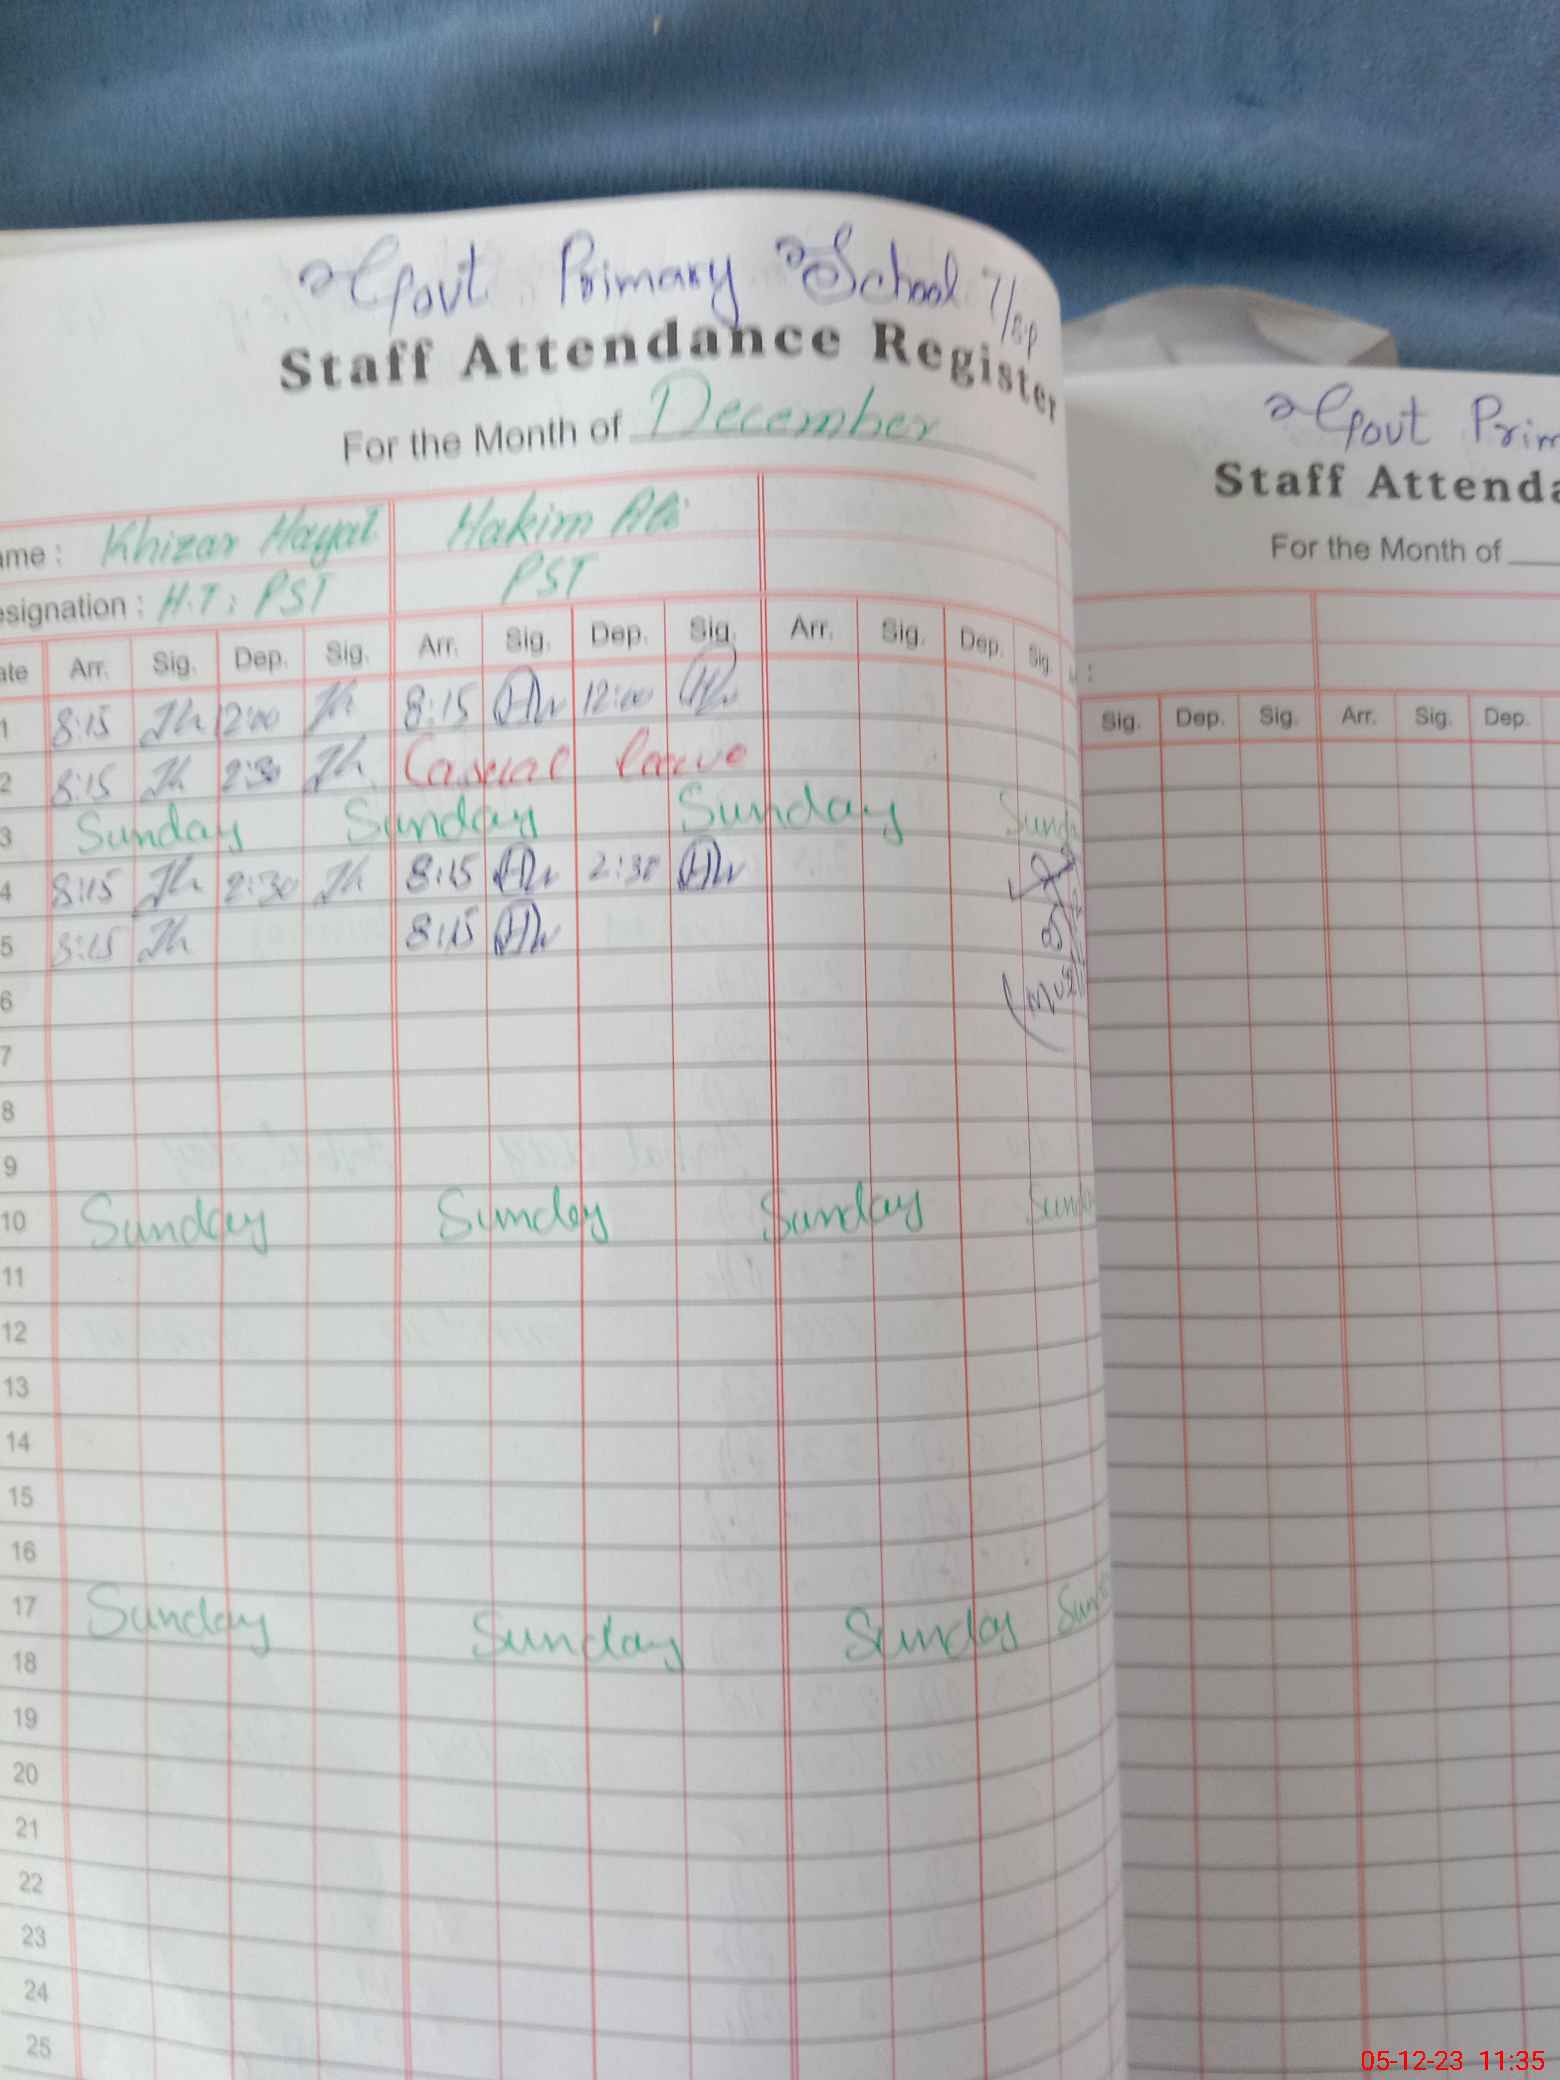 Govt Primary School 7/8p
Staff Attendance Register
For the Month of December
ame : Khizar Hayat Hakim Ali
esignation : H.T : PST PST
ate Arr. Sig. Dep. Sig. Arr. Sig. Dep. Sig. Arr. Sig. Dep. Sig.
1 8:15 12:00 8:15 12:00
2 8:15 2:30 Casual leave
3 Sunday Sunday Sunday Sunda
4 8:15 2:30 8:15 2:30
5 8:15 8:15
6
7
8
9
10 Sunday Sunday Sunday Sunda
11
12
13
14
15
16
17 Sunday Sunday Sunday Sun
18
19
20
21
22
23
24
25
Govt Prim
Staff Attenda
For the Month of
:
Sig. Dep. Sig. Arr. Sig. Dep.
05-12-23 11:35